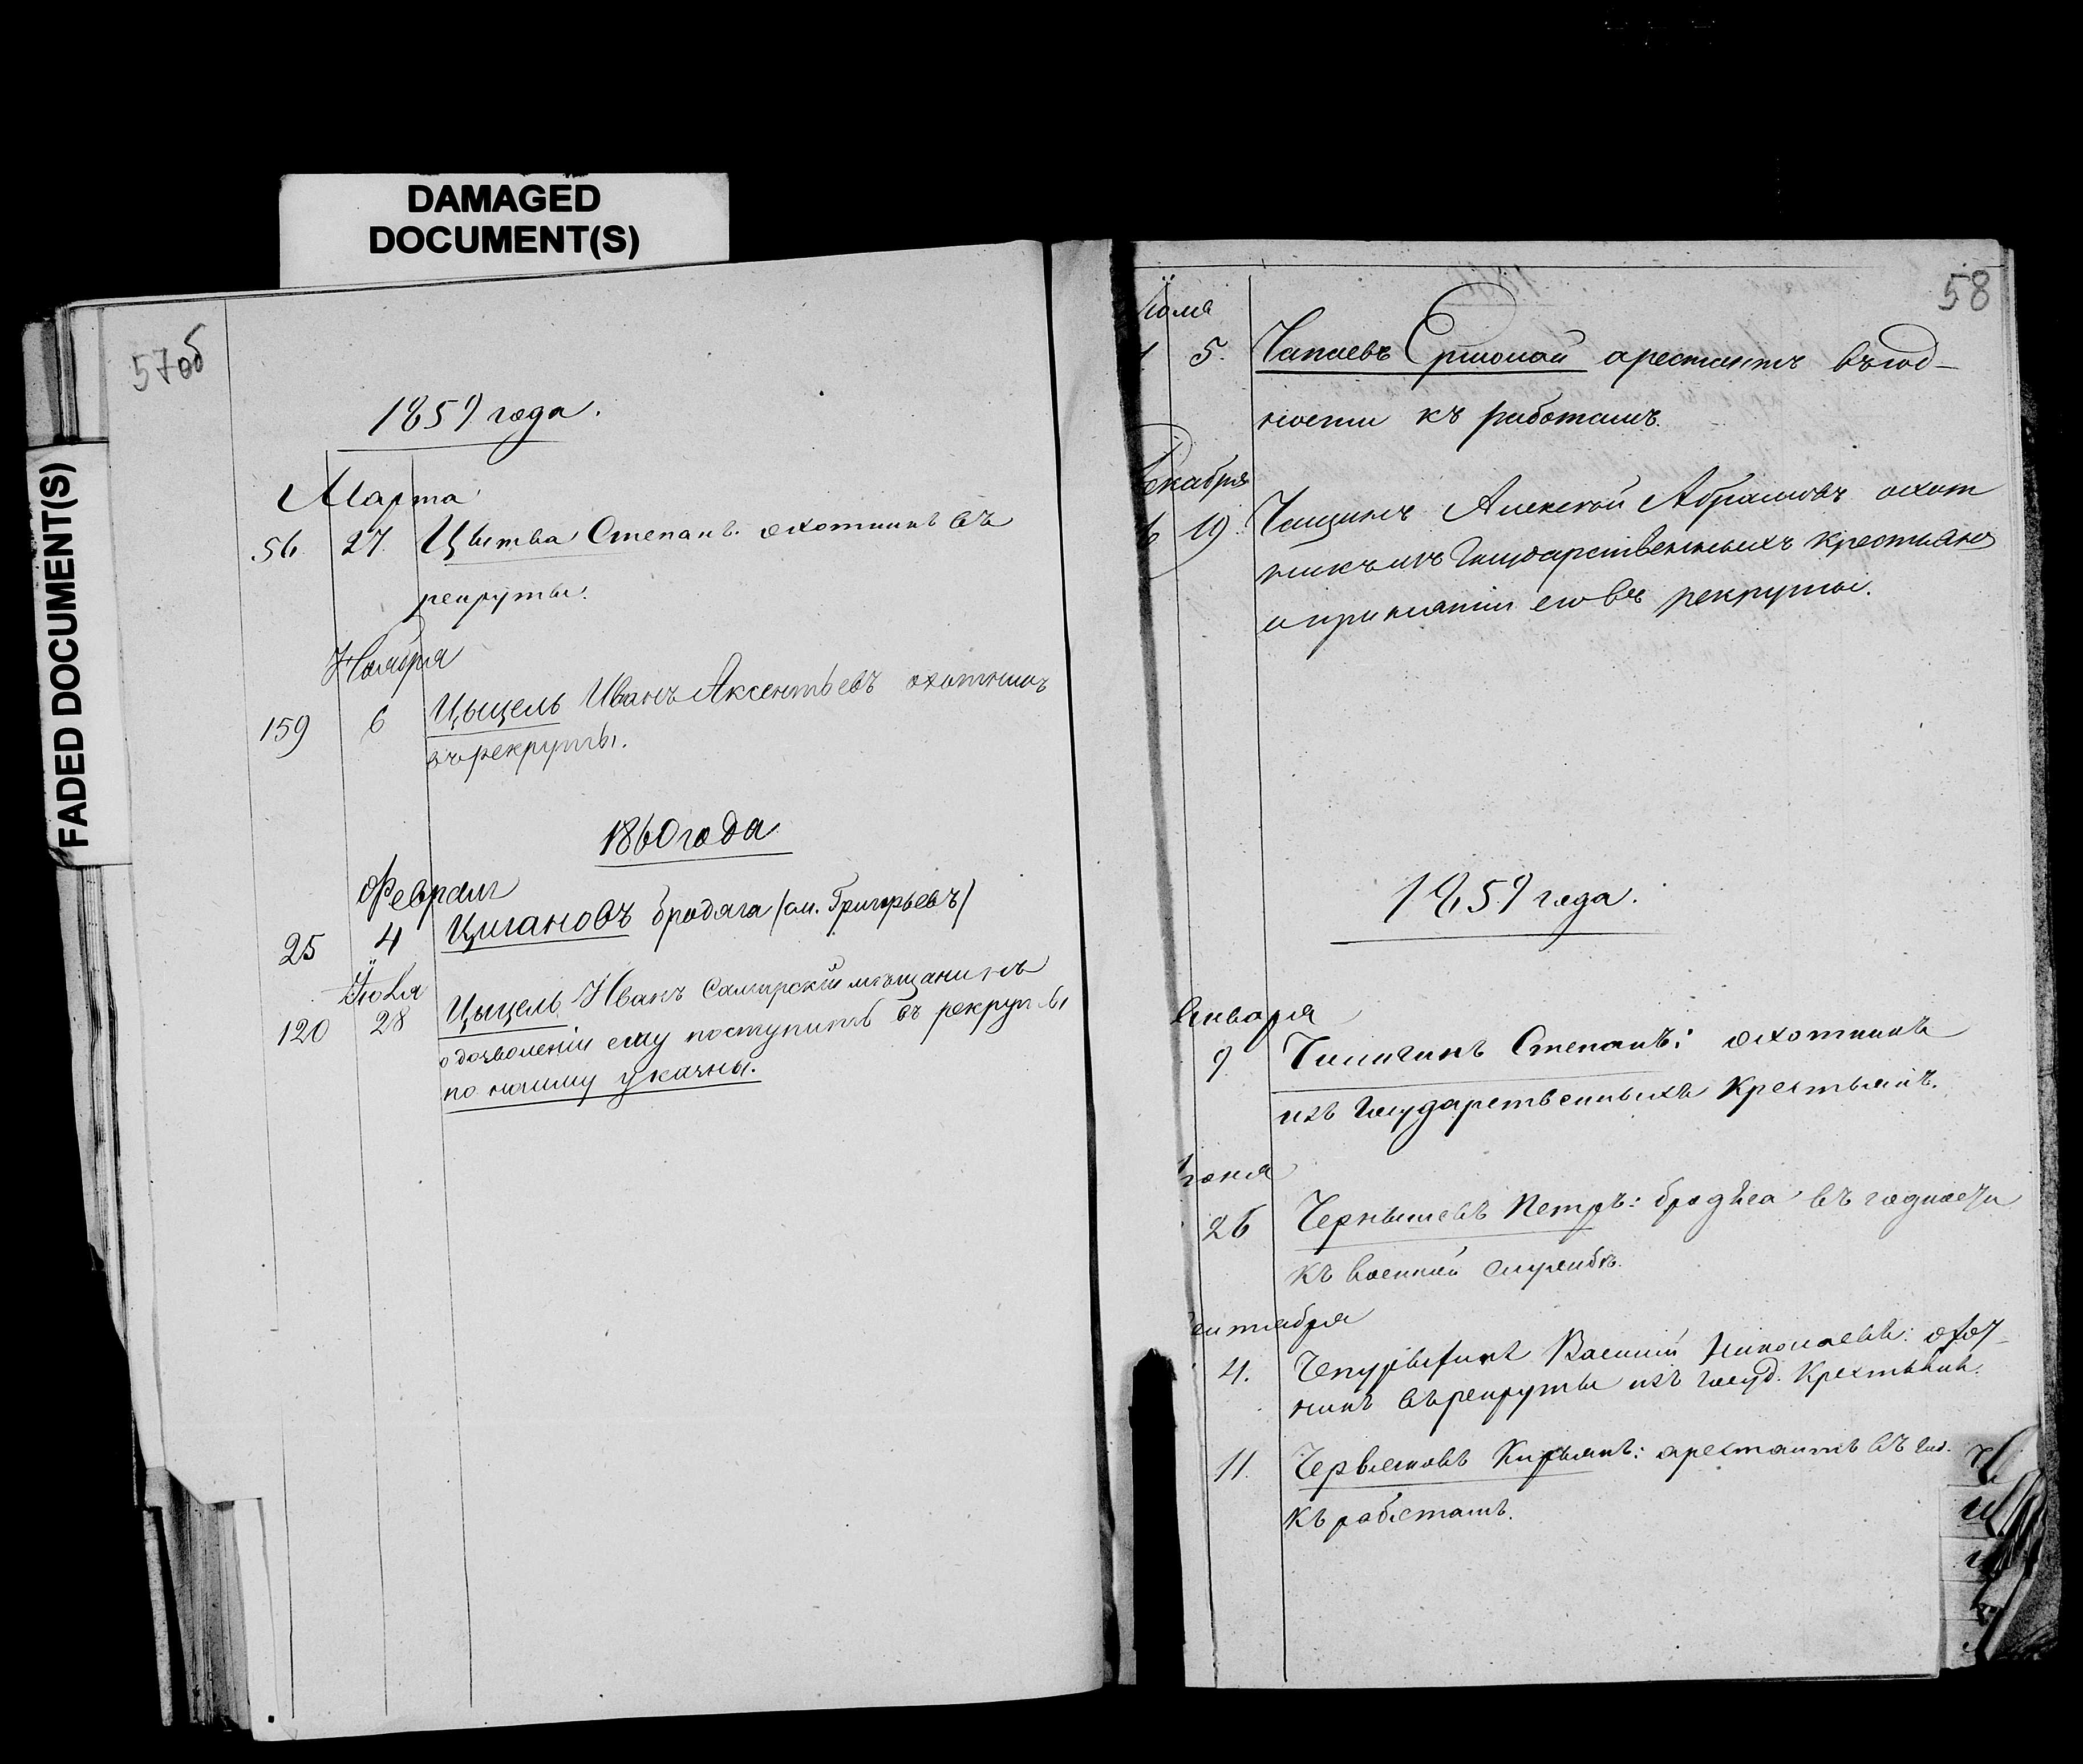 DAMAGED
DOCUMENT(S)
FADED DOCUMENT(S)
57об
1859 года.
Марта
56. 27. Цытва Степанъ. охотникъ въ
рекруты.
Ноября
159 6 Цыцель Иванъ Аксентьевъ охотникъ
въ рекруты.
1860 года
Февраля
25 4 Цигановъ бродяга (см. Григорьевъ)
Іюля
120 28 Цыцель Иванъ Самарскій мѣщанинъ
о дозволеніи ему поступить въ рекруты
по найму
58
5. Чапаевъ Ермолай арестантъ въ год-
ности къ работамъ.
екабря
19. Чащинъ Алексѣй Абрамовъ охот
никъ изъ Государственныхъ крестьянъ
о принятіи его въ рекруты.
1859 года.
Января
9 Чиличинъ Степанъ: охотникъ
изъ Государственныхъ Крестьянъ.
юня
26 Чернышевъ Петръ: бродяга въ годности
къ военной службѣ.
ентября
4. Василій Николаевъ: охот-
никъ въ рекруты изъ госуд. Крестьянъ.
11. Кирьянъ: арестантъ въ год.
къ работамъ.
Ч